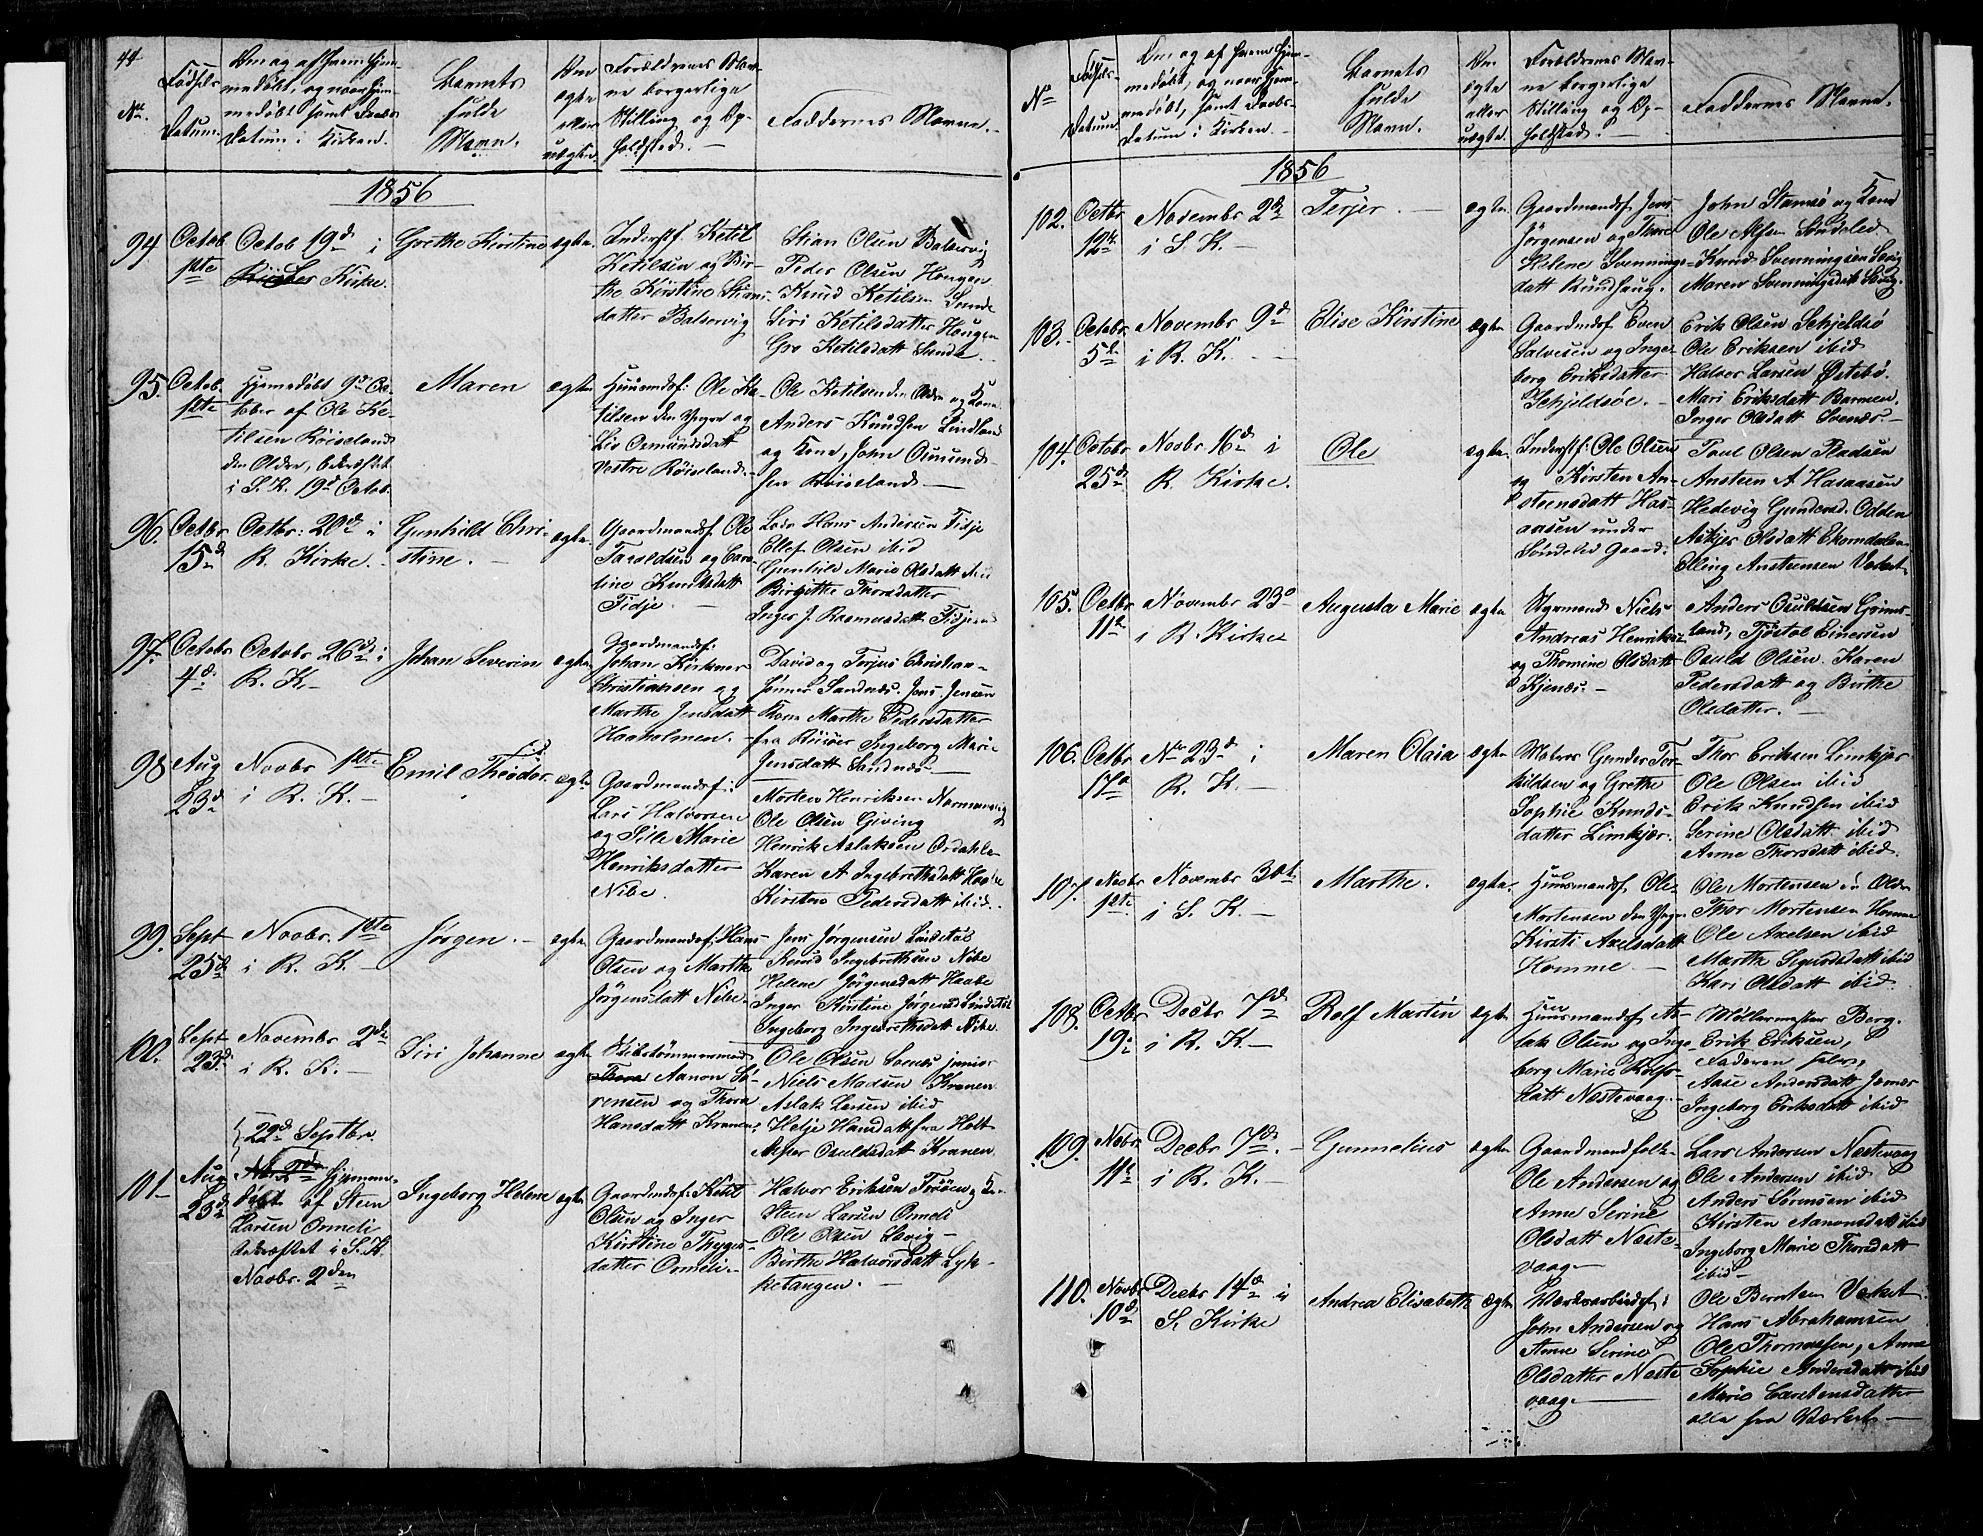 44
No.
Fødsels
Datum.
Om og af hvem hjem-
medøbt, og naar hjem-
medøbt samt Daabs
Datum i Kirken.
Barnets
fulde
Navn.
Om
ægte
eller
uægte.
Forældrenes Nav-
ne borgerlige
Stilling og Op-
holdsted.
Faddernes Navne.
1856
94
Octob
1ste
Octob 19d i
Kirke.
Grethe Kirstine
ægte.
Inderstf. Ketil
Ketilsen og Bir-
the Kirstine Stians-
datter Balservig
Stian Olsen Balservig
Peder Olsen Hougen
Knud Ketilsen Sunde
Siri Ketilsdatter Hougen
Gro Ketilsdatt Sunde.
95.
Octob.
1ste
Hjemedøbt 9d Oc-
tober af Ole Ke-
tilsen Røiseland
den Ældre, bekræftet
i S. K. 19d Octob.
Maren
ægte
Huusmdsf: Ole Ke-
tilsen den Yngre og
Liv Osmundsdatt
Vestre Røiseland.
Ole Ketilsen den Ældre og Kone
Anders Knudsen Lindland
og Kone, John Osmund-
sen Røiseland.
96.
Octbr
15d
Octbr: 20de i
R. Kirke.
Gunhild Chri-
stine.
ægte.
Gaardmandsf. Ole
Taraldsen og Caro-
line Knudsdatt
Tidje.
Lars Hans Andersen Tidje
Ellef Olsen ibid
Gunhild Marie Olsdatt ibid
Birgithe Thorsdatter
Inger J. Rasmusdatt Tidje
97.
Octobr
4d
Octobr 26de i
R. K.
Johan Severin
ægte
Gaardmandsf.
Johan Kirkner
Christiansen og
Marthe Jensdatt
Haaholmen.
David og Torjus Christian-
sønner Sandnæs. Jens Jensen
Kone Marthe Pedersdatter
fra Riisøer Ingeborg Marie
Jensdatt Sandnæs
98
Aug
23d
Novbr 1ste
i R. K.
Emil Theodor.
ægte.
Gaardmandsf.
Lars Halvorsen
og Sille Marie
Henriksdatter
Nibe.
Morten Henriksen Narmansvig
Ole Olsen Giving
Henrik Aslaksen Ordahl
Karen A Ingebrethsdatt Haabe
Kirstine Pedersdatt ibid.
99.
Sept
25d
Novbr. 1ste
i R. K.
Jørgen.
ægte.
Gaardmandsf. Hans
Olsen og Marthe
Jørgensdatt Nibe
Jens Jørgensen Lindstøl
Knud Ingebrethsen Nibe
Helene Jørgensdatt Haabe
Inger Kirstine Jørgensd Lindstøl
Ingeborg Ingebrethsdatt Nibe
100.
Sept
23d
Novembr 2de
i R. K.
Siri Johanne
ægte
Skibstømmermand
Aanon Sø-
rensen og Thora
Hansdatt Kranen
Ole Olsen Sørnes junior
Niels Madsen Kranen
Aslak Larsen ibid
Helje Hansdatt fra Holt
Asper Osuldsdatt Kranen
101
Aug
23d
22d Septbr
Nov. 2d Hjemme-
døbt af Steen
Larsen Ormeli
bekræftet i S. K.
Novbr. 2den
Ingeborg Helene
ægte.
Gaardmdsf. Ketil
Olsen og Inger
Kirstine Thyges-
datter Ormeli.
Halvor Eriksen Trøen og K-
Steen Larsen Ormeli
Ole Olsen Lævig
Birthe Halvorsdatt Lyk-
ketangen.
No
Fødsels-
Datum
Om og af hvem hjem-
medøbt, og naar hjem-
medøbt, samt Daabs-
Datum i Kirken.
Barnets
fulde
Navn.
Om
ægte
eller
uægte.
Forældrenes Nav-
ne borgerlige
Stilling og Op-
holdsted.
Faddernes Navne.
1856
102.
Octbr
12te
Novembr 2de
i S. K.
Terjer.
ægte.
Gaardmandsf. Jens
Jørgensen og Thore
Helene Svennings-
datt Rundhaug.
John Stamsø og Kone
Ole Alfsen Søndeled
Knud Svenningsen Lævig
Maren Svenningsdatt Lævig.
103.
Octobr
5te
Novembr 9d
i R. K.
Elise Kirstine
ægte
Gaardmdsf Even
Salvesen og Inge-
borg Eriksdatter
Schjeldsøe.
Erik Olsen Schjeldsø
Ole Eriksen ibid
Halvor Larsen Østebø.
Mari Eriksdatt Barmen.
Inger Olsdatt Sørnæs.
104.
Octobr
25d
Novbr 16de i
R. Kirke.
Ole
ægte.
Inderstf: Ole Olsen
og Kirsten An-
stensdatt Has-
aasen under
Søndeled Gaard.
Poul Olsen Stadsen
Ansteen A Hasaasen
Hedevig Gundersd. Odden
Askjer Olsdatt Ekorndalen
Elling Anstensen Værket
105.
Octbr
11d
Novembr 23d
i R. Kirke
Augusta Marie
ægte.
Styrmand Niels
Andreas Henriksen
og Thomine Olsdatt
Kjenæs.
Anders Osuldsen Grims-
land, Tjøstol Einersen
Osuld Olsen. Karen
Pedersdatt og Birthe
Olsdatter.
106.
Octbr
17d
Nvr 23d i
R. K.
Maren Olaia
ægte
Matros Gunder Ter-
kildsen og Grethe
Sophie Knuds-
datter Limkjær.
Thor Eriksen Limkjær
Ole Olsen ibid
Erik Knudsen ibid
Serine Olsdatt ibid
Anne Thorsdatt ibid.
107.
Novbr
1ste
Novembr 30te
i S. K.
Marthe.
ægte.
Huusmandsf Ole
Mortensen den Yngre
Kirsti Axelsdatt
Homme
Ole Mortensen d. Ældre
Thor Mortensen Homme
Ole Axelsen ibid
Marthe Sigurdsdatt ibid
Kari Olsdatt ibid.
108.
Octbr
19de
Decbr 7d
i R. K.
Rolf Martin
ægte.
Huusmandsf As-
lak Olsen og Inge-
borg Marie Rolfs-
datt Næstevaag.
Møllermester Berg.
Erik Eriksen,
Faderen selv,
Aase Andersdatt Jernæs
Ingeborg Eriksdatt ibid
109.
Novbr.
11d
Decbr 7de.
i R. K.
Gunnelius
ægte
Gaardmandfolk.
Ole Andersen og
Anne Serine
Olsdatt Næste-
vaag.
Lars Andersen Næstevaag
Ole Andersen ibid
Anders Sørensen ibid
Kirsten Aanonsdatt ibid
Ingeborg Marie Thorsdatt
ibid
110.
Novbr.
10d
Decbr 14de i
S. Kirke
Andrea Elisabeth
ægte
Værksarbeidsf.
John Andersen og
Anne Serine
Olsdatter Næste
vaag.
Ole Berntsen Værket.
Hans Abrahamsen
Ole Thomassen, Anne
Sophie Andersdatt ibid
Marie Carstensdatter
alle fra Værket.